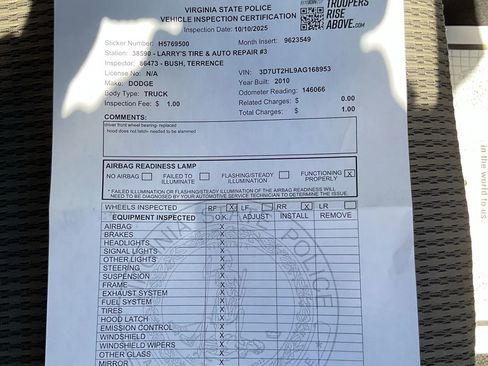 VIRGINIA STATE POLICE
VEHICLE INSPECTION CERTIFICATION
TROOPERS
RISE
ABOVE.COM
Inspection Date: 10/10/2025
Sticker Number: H5769500 Month Insert: 9623549
Station: 38590 - LARRY'S TIRE & AUTO REPAIR #3
Inspector: 86473 - BUSH, TERRENCE
License No: N/A VIN: 3D7UT2HL9AG168953
Make: DODGE Year Built: 2010
Body Type: TRUCK Odometer Reading: 146066
Inspection Fee: $ 1.00 Related Charges: $ 0.00
Total Charges: $ 1.00
COMMENTS:
driver front wheel bearing- replaced
hood does not latch- needed to be slammed
AIRBAG READINESS LAMP
NO AIRBAG FAILED TO ILLUMINATE FLASHING/STEADY ILLUMINATION FUNCTIONING PROPERLY X
* FAILED ILLUMINATION OR FLASHING/STEADY ILLUMINATION OF THE AIRBAG READINESS WILL
NEED TO BE DIAGNOSED BY YOUR AUTOMOTIVE SERVICE TECHNICIAN TO DETERMINE THE ISSUE.
WHEELS INSPECTED RF X LF RR X LR
EQUIPMENT INSPECTED O.K. ADJUST INSTALL REMOVE
AIRBAG X
BRAKES X
HEADLIGHTS X
SIGNAL LIGHTS X
OTHER LIGHTS X
STEERING X
SUSPENSION X
FRAME X
EXHAUST SYSTEM X
FUEL SYSTEM X
TIRES X
HOOD LATCH X
EMISSION CONTROL X
WINDSHIELD X
WINDSHIELD WIPERS X
OTHER GLASS X
MIRROR X
in the world to us